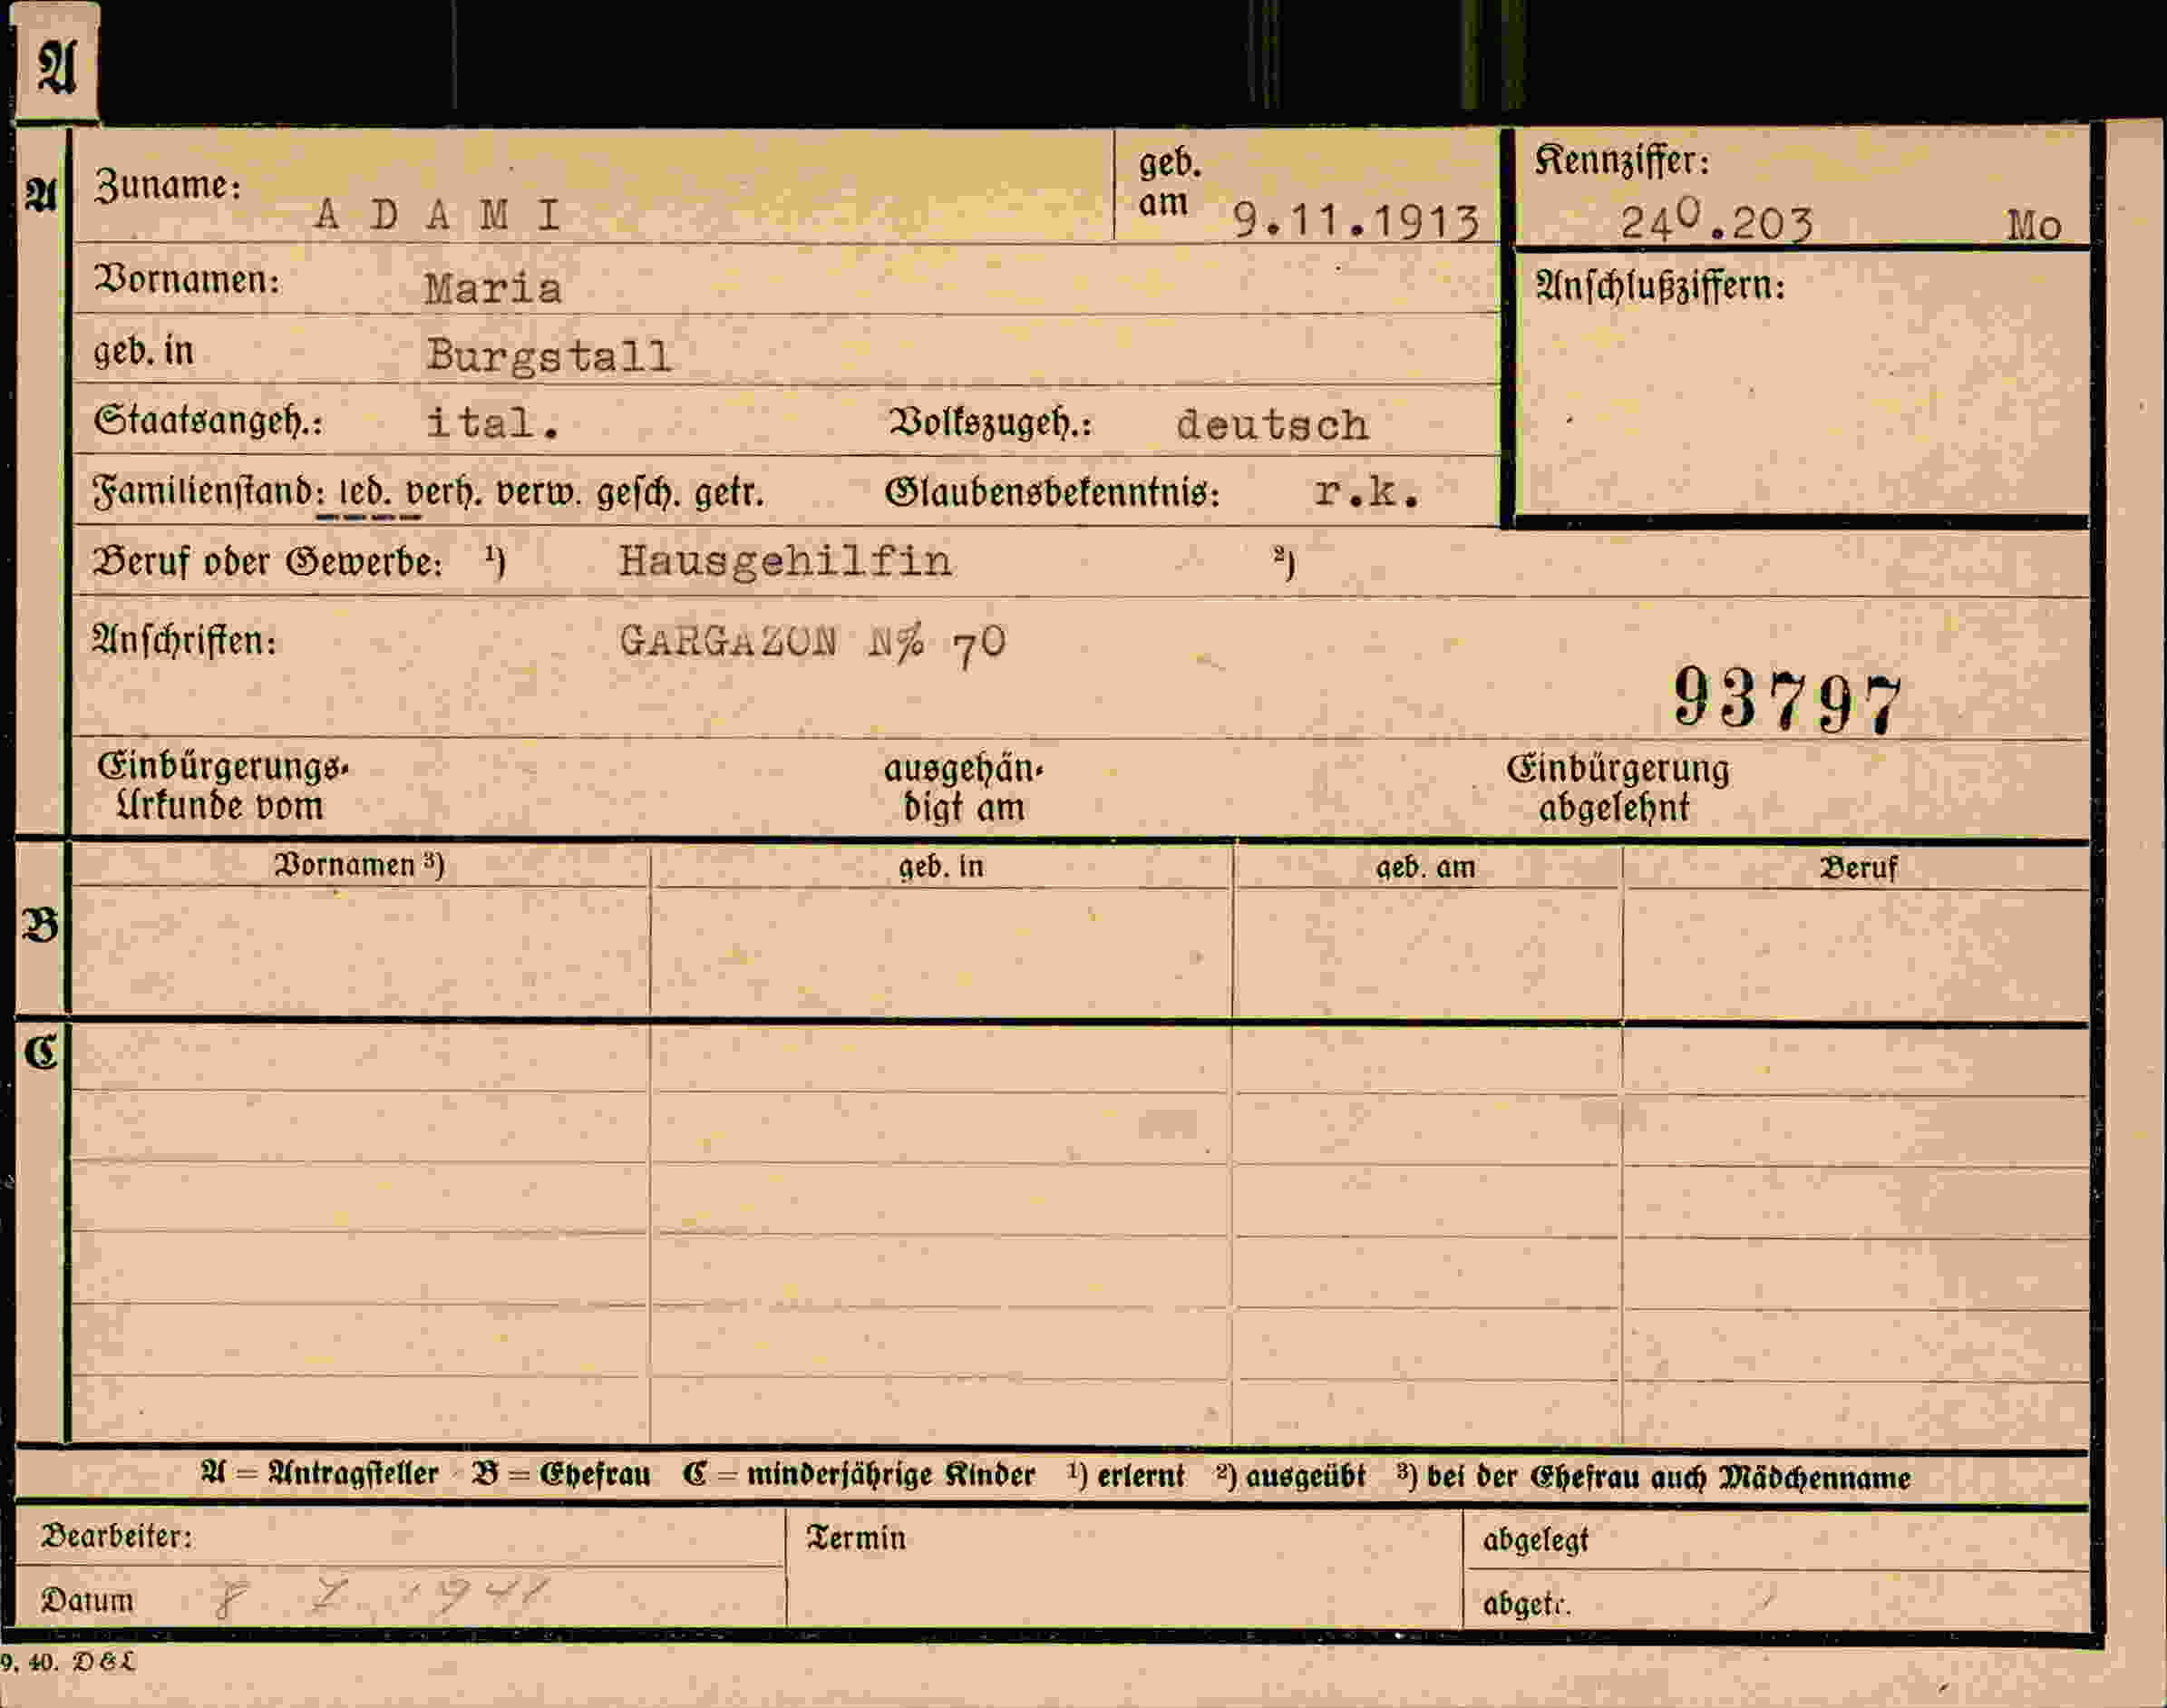 A
A
Zuname: ADAMI geb. am 9.11.1913 Kennziffer: 240.203 Mo
Vornamen: Maria Anschlußziffern:
geb. in Burgstall
Staatsangeh.: ital. Volkszugeh.: deutsch
Familienstand: led. verh. verw. gesch. getr. Glaubensbekenntnis: r.k.
Beruf oder Gewerbe: ¹) Hausgehilfin ²)
Anschriften: GARGAZON N% 70
93797
Einbürgerungs-Urkunde vom ausgehän-digt am Einbürgerung abgelehnt
Vornamen ³) geb. in geb. am Beruf
B
C
A = Antragsteller B = Ehefrau C = minderjährige Kinder ¹) erlernt ²) ausgeübt ³) bei der Ehefrau auch Mädchenname
Bearbeiter: Termin abgelegt
Datum 8 1941 abgetr.
9. 40. D&L